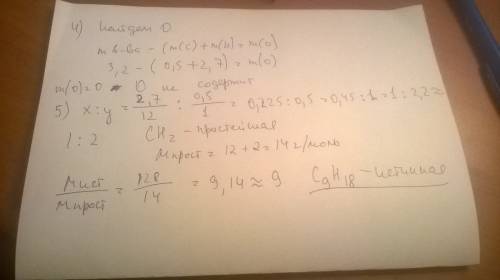 4) Найдем O
m в-ва - (m(C) + m(H)) = m(O)
3,2 - (0,5 + 2,7) = m(O)
m(O) = 0 O не содержит
5) x : y = 2,7/12 : 0,5/1 = 0,225 : 0,5 = 0,45 : 1 = 1 : 2,2 ≈
1 : 2 CH2 - простейшая
Mпрост = 12 + 2 = 14 г/моль
Mист/Mпрост = 128/14 = 9,14 ≈ 9 C9H18 - истинная